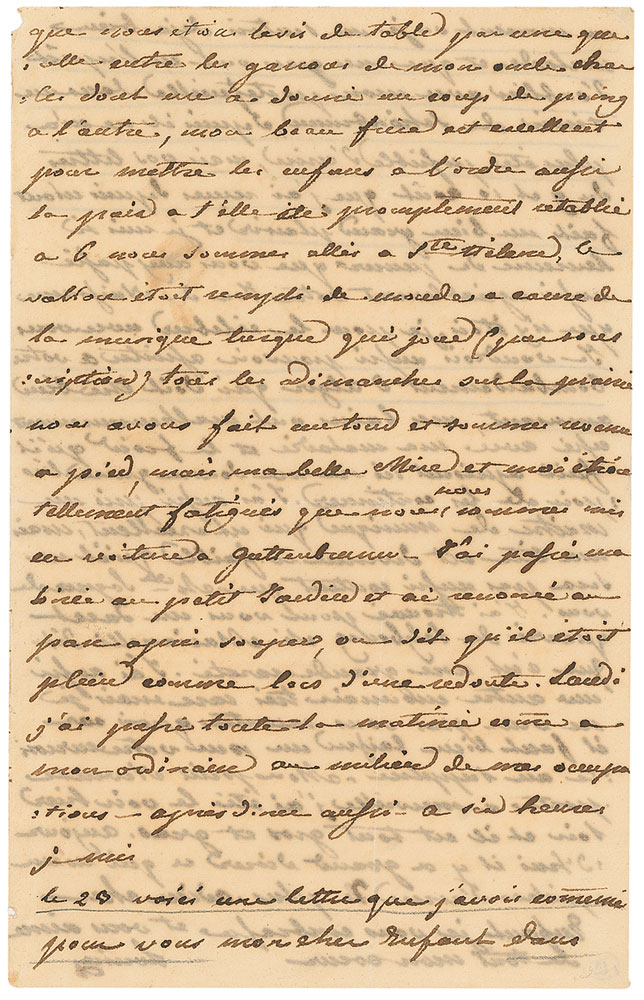 que nous etions levés de table par une que
:relle entre les garçons de mon oncle char
:les dont un a donné un coup de poing
a l'autre, mon beau frere est excellent
pour mettre les enfans a l'ordre aussi
la paix a t'elle été promptement retablie
a 6 nous sommes allés a Ste Hélene, le
vallon étoit rempli de monde a cause de
la musique turque qui joue (par sous
:cription) tous les Dimanches sur la prairie
nous avons fait un tour et sommes revenu
a pied, mais ma belle Mere et moi étions
tellement fatigués que nous nous sommes mis
en voiture a Guttenbrunn. J'ai passé ma
soirée au petit Jardin et ai renoncé au
parc après souper, on dit qu'il étoit
plein comme lors d'une redoute. Lundi
j'ai passé toute la matinée come a
mon ordinaire au milieu de mes occupa
:tions - après diner aussi - a six heures
je mis
le 23 voici une lettre que j'avois comencé
pour vous mon cher Enfant dans